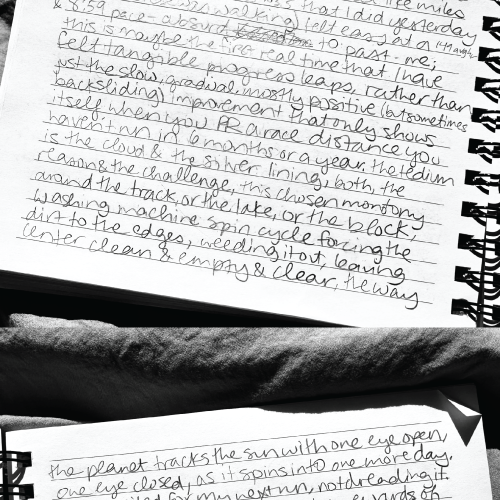 like miles
walking) felt easy that I did yesterday
& 8:59 pace - absurd to past-me;
this is maybe the first real time that I have
felt tangible progress leaps, rather than
just the slow, gradual, mostly positive (but sometimes
backsliding) improvement that only shows
itself when you PR a race distance you
haven't run in 6 months or a year. the tedium
is the cloud & the silver lining, both, the
reason & the challenge, this chosen monotony
around the track, or the lake, or the block;
washing machine spin cycle forcing the
dirt to the edges, weeding it out, leaving
center clean & empty & clear, the way
the planet tracks the sun with one eye open,
one eye closed, as it spins into one more day.
for my next run, not dreading it.